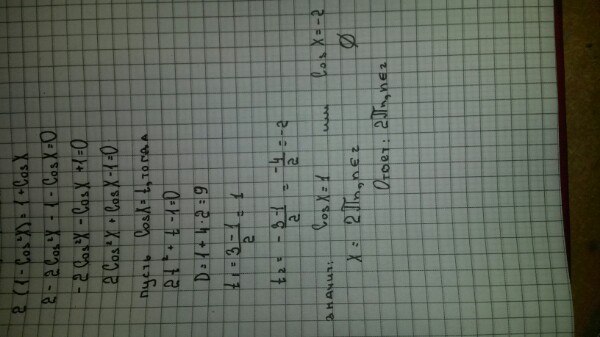 2 (1 - Cos²X) = 1 + CosX
2 - 2Cos²X - 1 - CosX = 0
- 2Cos²X - CosX + 1 = 0
2Cos²X + CosX - 1 = 0
пусть CosX = t, тогда
2t² + t - 1 = 0
D = 1 + 4·2 = 9
t₁ = 3 - 1 / 2 = 1
t₂ = - 3 - 1 / 2 = -4 / 2 = -2
значит: CosX = 1 или CosX = -2
X = 2πn, n∈z ∅
Ответ: 2πn, n∈z